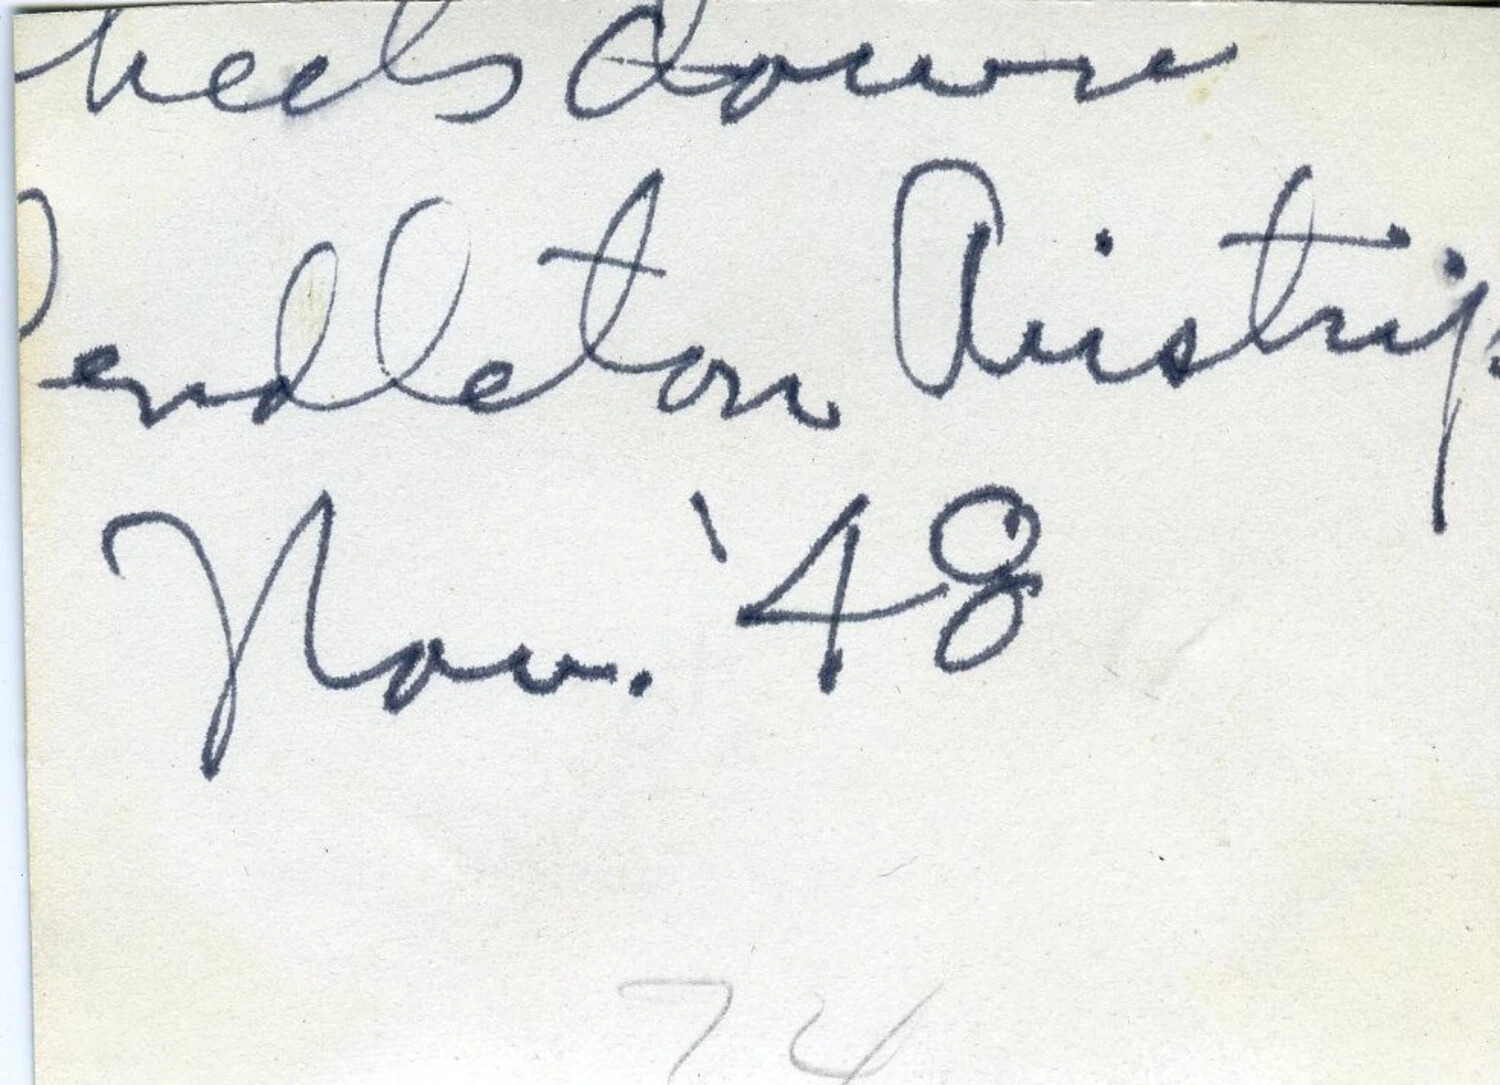 heels down
Pendleton Airstrip
Nov. '48
74